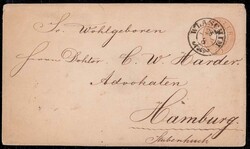 Sr. Wohlgeboren
Herrn Doktor C. W. Harder.
Advokaten
Hamburg.